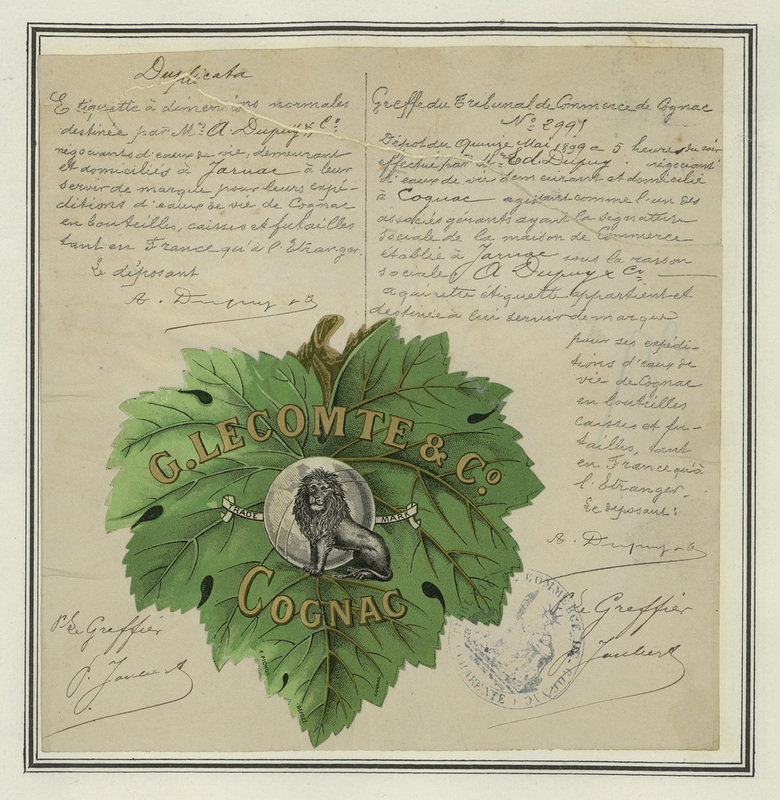 Duplicata
Etiquette à dimensions normales
destinée par Mrs A Dupuy & Co
négociants d'eaux de vie, demeurant
et domiciliés à Jarnac à leur
servir de marque pour leurs expé-
ditions d'eaux de vie de Cognac
en bouteilles, caisses et futailles
tant en France qu'à l'Etranger.
Le déposant
A. Dupuy & Co
Greffe du Tribunal de Commerce de Cognac
No 2991
Dépôt du Quinze Mai 1899 à 5 heures du soir
effectué par Mr Ed. Dupuy. négociant
d'eaux de vie demeurant et domicilié
à Cognac agissant comme l'un des
associés gérants ayant la signature
sociale de la maison de Commerce
établie à Jarnac sous la raison
sociale A Dupuy & Co
à qui cette étiquette appartient et
destinée à lui servir de marque
pour ses expédi-
tions d'eaux de
vie de Cognac
en bouteilles
caisses et fu-
tailles, tant
en France qu'à
l'Etranger.
Le déposant:
A. Dupuy & Co
G. LECOMTE & Co.
TRADE MARK
COGNAC
P. Le Greffier
J. Joubert
P. Le Greffier
J. Joubert
COMMERCE DE COGNAC
CHARENTE